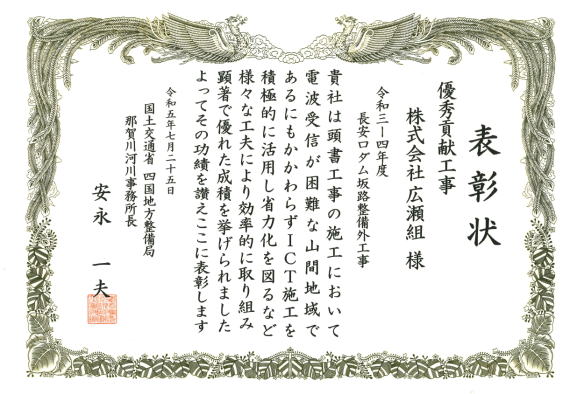 表彰状
優秀貢献工事
株式会社 広瀬組 様
令和三ー四年度
長安口ダム坂路整備外工事
貴社は頭書工事の施工において
電波受信が困難な山間地域で
あるにもかかわらずICT施工を
積極的に活用し省力化を図るなど
様々な工夫により効率的に取り組み
顕著で優れた成績を挙げられました
よってその功績を讃えここに表彰します
令和五年七月二十五日
国土交通省 四国地方整備局
那賀川河川事務所長
安永 一夫